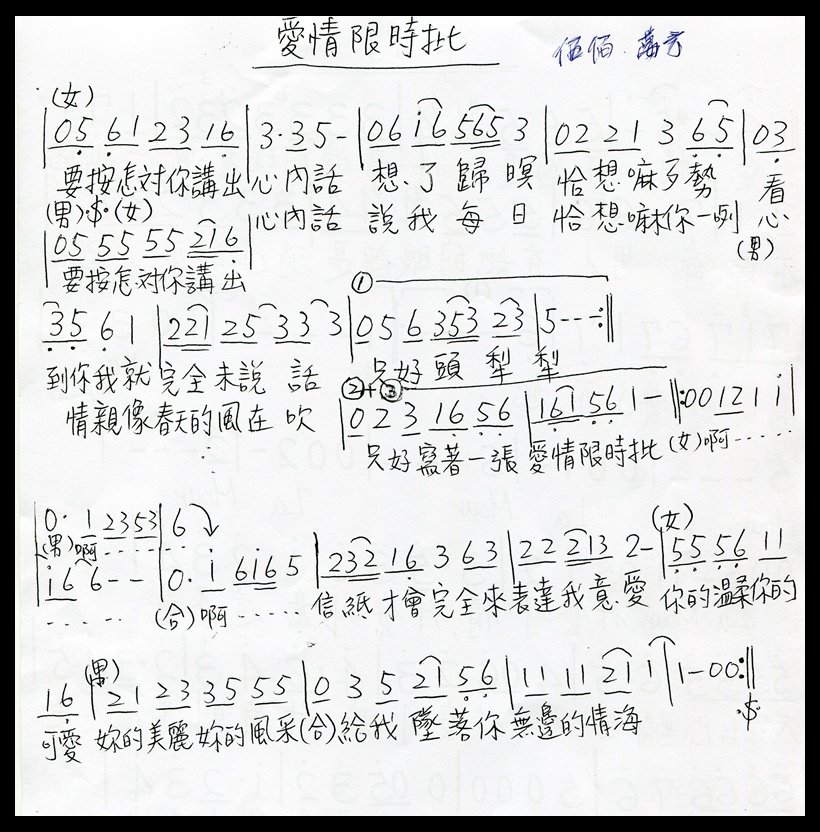 愛情限時批
伍佰 萬芳
(女)
|05 61 23 16|3·35-|06 i6 565 3|02 21 3 65|03
要按怎對你講出 心內話 想了歸暝 恰想嘛歹勢 看
(男)·$·(女) 心內話 說我每日 恰想嘛你一咧 心
|05 55 55 216| (男)
要按怎對你講出
①
35 61|221 25 33 3|05 6 353 23|5---:||
到你我就完全未說話 只好頭犁犁
②+③
情親像春天的風在吹 |0 2 3 16 56|161 56 1-||:00 12 1 i|
只好寫著一張愛情限時批 (女)啊……
|0· 1 2353|6
(男)啊…… (女)
|i6 6--|0· i 6i6 5|232 16 3 63|22 213 2-|55 56 11
…… (合)啊…… 信紙才會完全來表達我意愛 你的溫柔你的
(男)
16|21 23 35 55|0 3 5 21 56|11 11 21 1|1-00:||
可愛 妳的美麗妳的風采(合)給我墜落你無邊的情海 ·$·